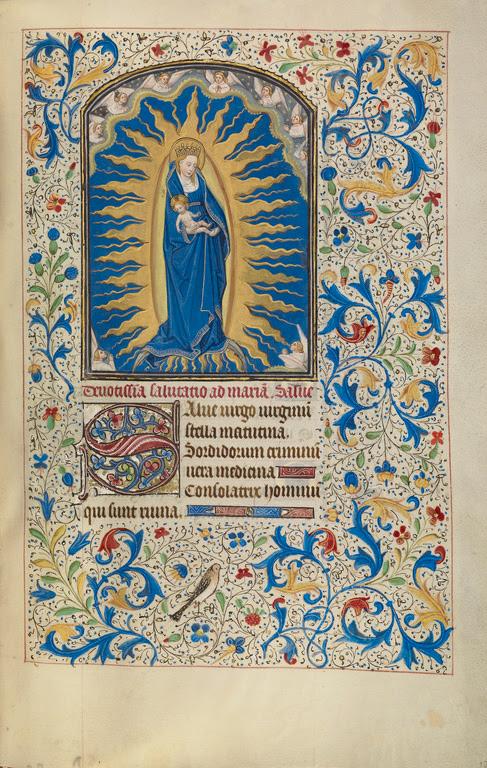 Deuotissia salutatio ad mariā. Salue
Salue uirgo uirginū
stella matutina.
Sordidorum criminū
uera medicina
Consolatrix hominū
qui sunt in ruina.